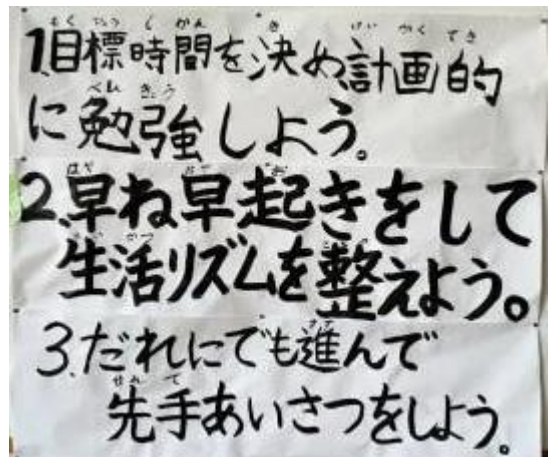 1.目標時間を決め、計画的
に勉強しよう。
2.早ね早起きをして
生活リズムを整えよう。
3.だれにでも進んで
先手あいさつをしよう。